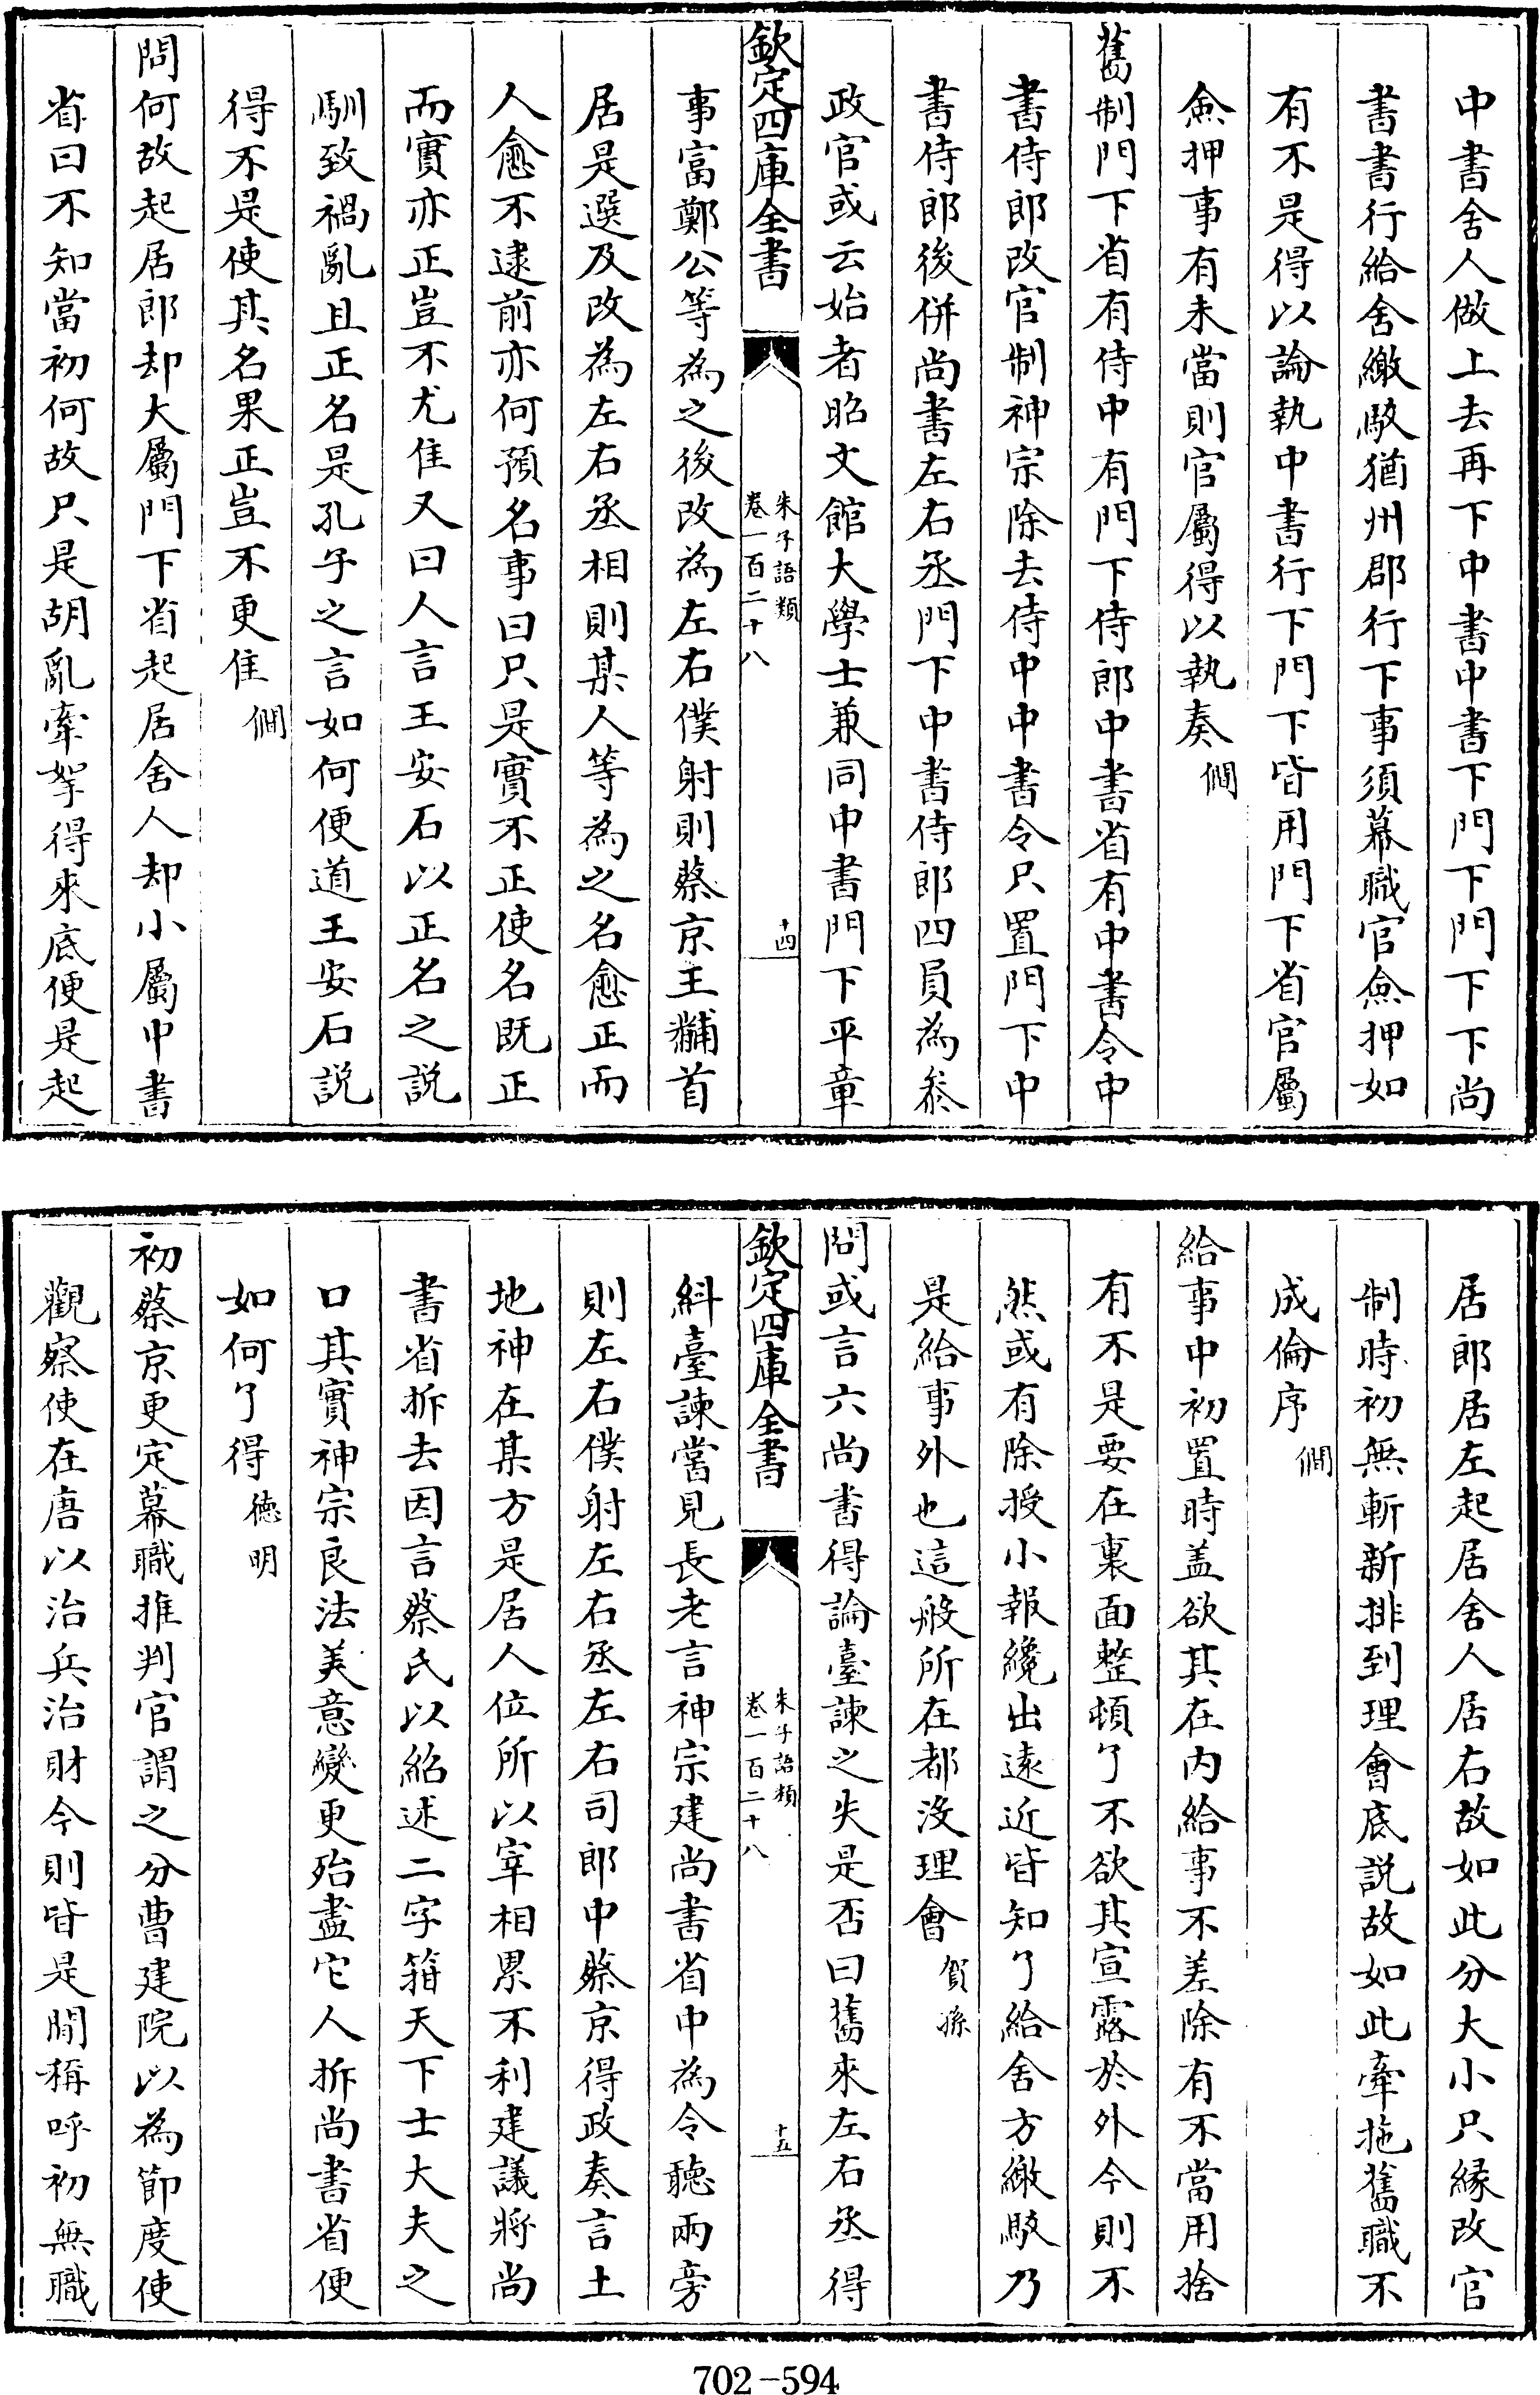 中書舍人做上去再下中書中書下門下門下下尚
書書行給舍繳駮猶州郡行下事須幕職官僉押如
有不是得以論執中書行下門下皆用門下省官屬
僉押事有未當則官屬得以執奏僩
舊制門下省有侍中有門下侍郎中書省有中書令中
書侍郎改官制神宗除去侍中中書令只置門下中
書侍郎後併尚書左右丞門下中書侍郎四員為叅
政官或云始者昭文館大學士兼同中書門下平章
欽定四庫全書
朱子語類
卷一百二十八
十四
事富鄭公等為之後改為左右僕射則蔡京王黼首
居是選及改為左右丞相則某人等為之名愈正而
人愈不逮前亦何預名事曰只是實不正使名既正
而實亦正豈不尤佳又曰人言王安石以正名之說
馴致禍亂且正名是孔子之言如何便道王安石說
得不是使其名果正豈不更佳僩
問何故起居郎却大屬門下省起居舍人却小屬中書
省曰不知當初何故只是胡亂牽拏得來底便是起
居郎居左起居舍人居右故如此分大小只緣改官
制時初無斬新排到理會底說故如此牽拖舊職不
成倫序僩
給事中初置時盖欲其在内給事不差除有不當用捨
有不是要在裏面整頓了不欲其宣露於外今則不
然或有除授小報纔出遠近皆知了給舍方繳駮乃
是給事外也這般所在都沒理會賀孫
問或言六尚書得論臺諫之失是否曰舊來左右丞得
欽定四庫全書
朱子語類
卷一百二十八
十五
糾臺諫嘗見長老言神宗建尚書省中為令聽兩旁
則左右僕射左右丞左右司郎中蔡京得政奏言土
地神在某方是居人位所以宰相累不利建議將尚
書省拆去因言蔡氏以紹述二字箝天下士大夫之
口其實神宗良法美意變更殆盡它人拆尚書省便
如何了得德明
初蔡京更定幕職推判官謂之分曹建院以為節度使
觀察使在唐以治兵治財今則皆是閒稱呼初無職
702-594